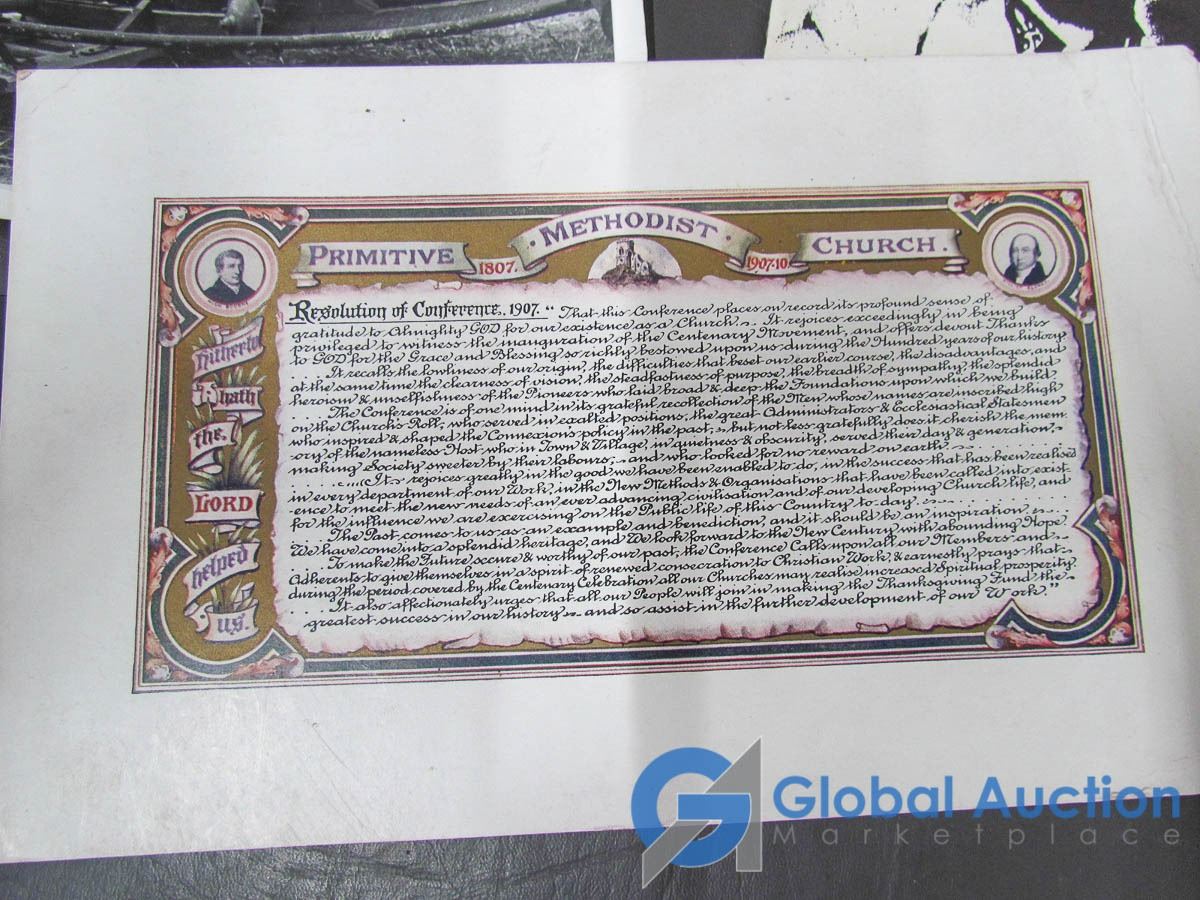 PRIMITIVE METHODIST CHURCH.
1807. 1907-10.
Hitherto
hath
the
LORD
helped
us.
Resolution of Conference, 1907. "That this Conference places on record its profound sense of
gratitude to Almighty GOD for our existence as a Church. It rejoices exceedingly in being
privileged to witness the inauguration of the Centenary Movement, and offers devout Thanks
to GOD for the Grace and Blessing so richly bestowed upon us during the Hundred years of our history
It recalls the lowliness of our origin, the difficulties that beset our earlier course, the disadvantages, and
at the same time the clearness of vision, the steadfastness of purpose, the breadth of sympathy, the splendid
heroism & unselfishness of the Pioneers who laid broad & deep the Foundations upon which we build
The Conference is of one mind in its grateful recollection of the Men whose names are inscribed high
on the Church's Roll, who served in exalted positions, the great Administrators & Ecclesiastical Statesmen
who inspired & shaped the Connexions policy in the past, but not less gratefully does it cherish the mem-
ory of the nameless Host who in Town & Village, in quietness & obscurity, served their day & generation,
making Society sweeter by their labours, and who looked for no reward on earth
It rejoices greatly in the good we have been enabled to do, in the success that has been realised
in every department of our Work, in the New Methods & Organisations that have been called into exist-
ence to meet the new needs of an ever advancing civilisation and of our developing Church life, and
for the influence we are exercising on the Public life of this Country to day.
The Past comes to us as an example and benediction, and it should be an inspiration,
We have come into a splendid heritage, and We look forward to the New Century with abounding Hope.
To make the Future secure & worthy of our past, the Conference Calls upon all our Members and
Adherents to give themselves in a spirit of renewed consecration to Christian Work, & earnestly prays that
during the period covered by the Centenary Celebration all our Churches may realise increased Spiritual prosperity.
It also affectionately urges that all our People will join in making the Thanksgiving Fund the
greatest success in our history and so assist in the further development of our Work."
Global Auction
Marketplace